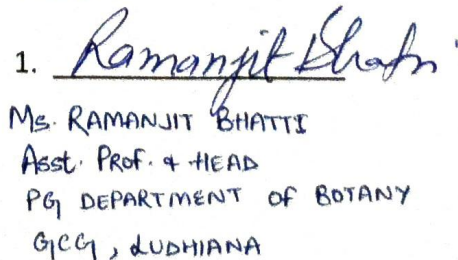 1. Ramanjit Bhatti
Ms. RAMANJIT BHATTI
Asst. Prof. & HEAD
PG DEPARTMENT OF BOTANY
GCG, LUDHIANA